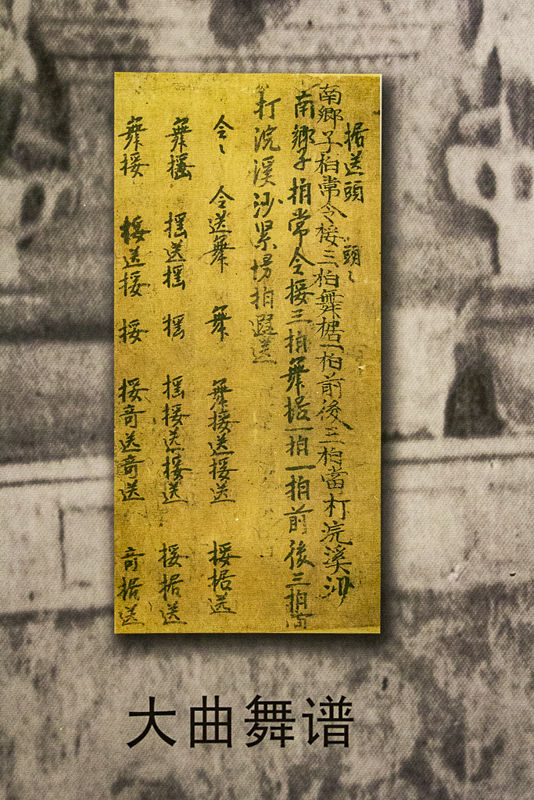 据送頭 頭〻
南鄉子拍常令挼三拍舞据一拍前後三拍當打浣溪沙
南鄉子拍常令挼三拍舞据一拍一拍前後三拍當
打浣溪沙 拍 送
令〻 令送舞 舞 舞挼送挼送 挼据送
舞摇 摇送摇 摇 摇挼送挼送 挼据送
舞挼 挼送挼 挼 挼奇送奇送 奇据送
大曲舞谱